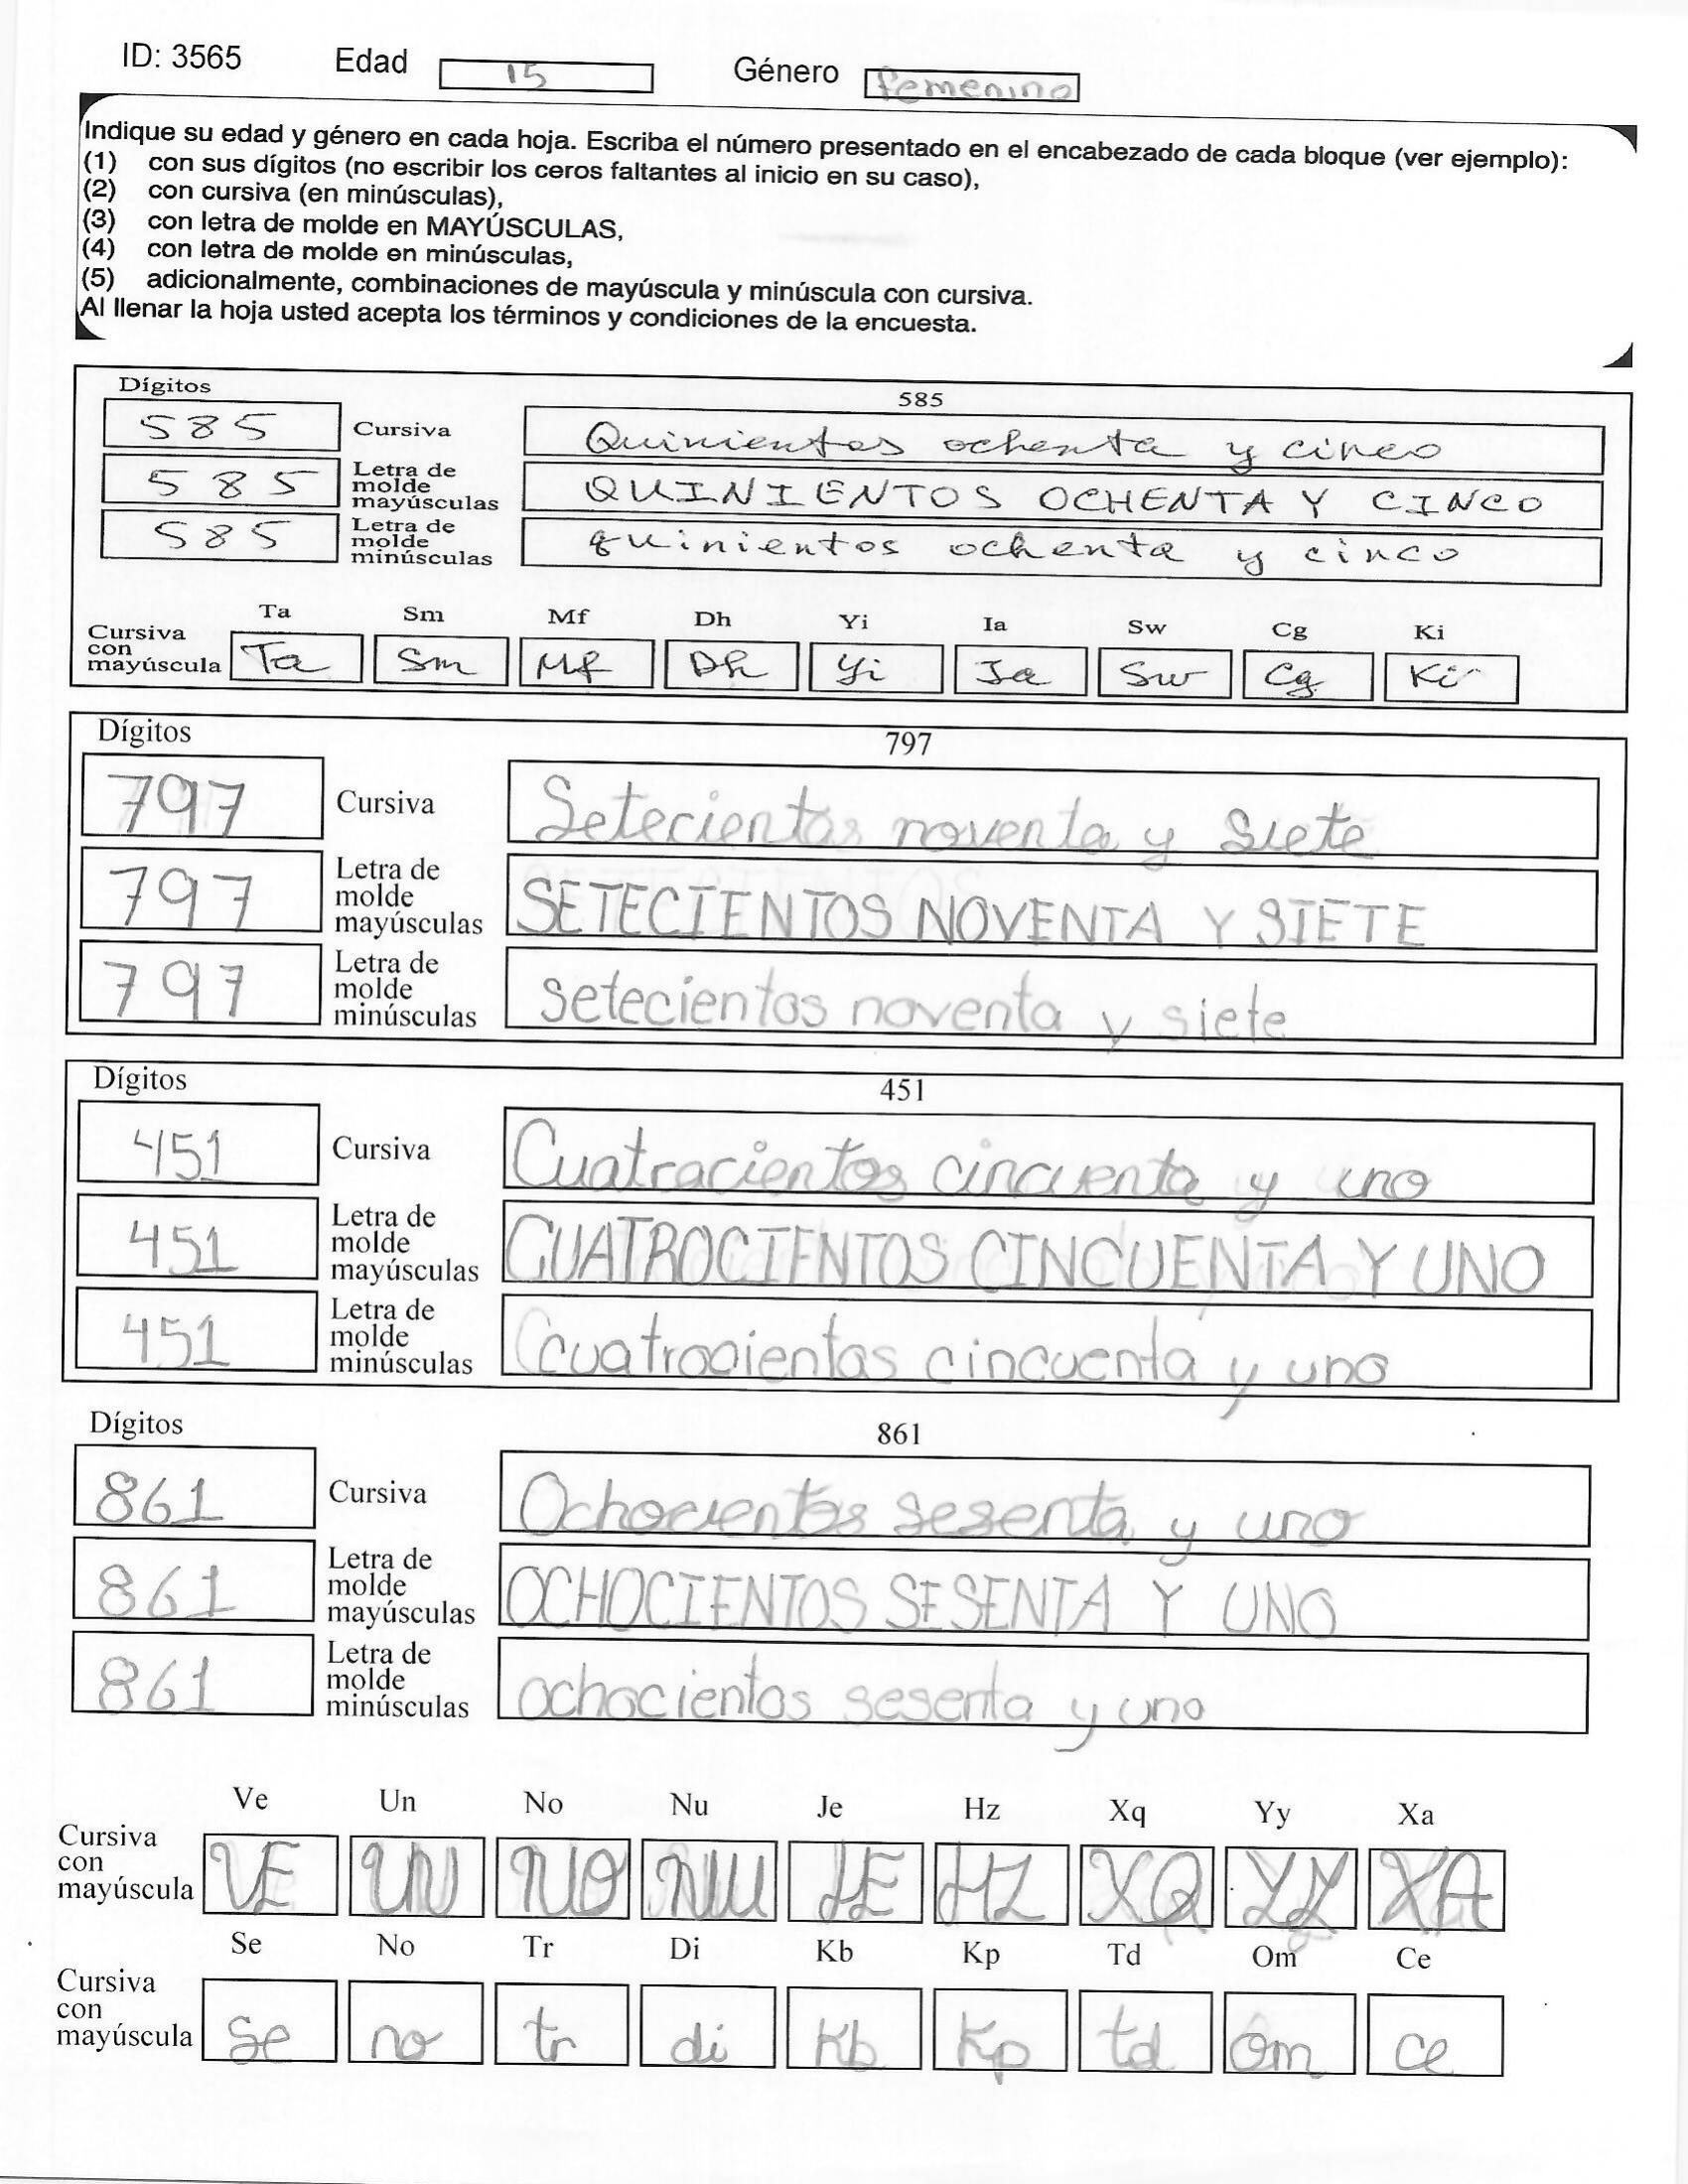 ID: 3565 Edad 15 Género femenino
Indique su edad y género en cada hoja. Escriba el número presentado en el encabezado de cada bloque (ver ejemplo):
(1) con sus dígitos (no escribir los ceros faltantes al inicio en su caso),
(2) con cursiva (en minúsculas),
(3) con letra de molde en MAYÚSCULAS,
(4) con letra de molde en minúsculas,
(5) adicionalmente, combinaciones de mayúscula y minúscula con cursiva.
Al llenar la hoja usted acepta los términos y condiciones de la encuesta.
Dígitos 585
585 Cursiva Quinientos ochenta y cinco
585 Letra de molde mayúsculas QUINIENTOS OCHENTA Y CINCO
585 Letra de molde minúsculas quinientos ochenta y cinco
Ta Sm Mf Dh Yi Ia Sw Cg Ki
Cursiva con mayúscula Ta Sm Mf Dh Yi Ia Sw Cg Ki
Dígitos 797
797 Cursiva Setecientos noventa y siete
797 Letra de molde mayúsculas SETECIENTOS NOVENTA Y SIETE
797 Letra de molde minúsculas setecientos noventa y siete
Dígitos 451
451 Cursiva Cuatracientos cincuenta y uno
451 Letra de molde mayúsculas CUATROCIENTOS CINCUENTA Y UNO
451 Letra de molde minúsculas cuatrocientos cincuenta y uno
Dígitos 861
861 Cursiva Ochocientos sesenta y uno
861 Letra de molde mayúsculas OCHOCIENTOS SESENTA Y UNO
861 Letra de molde minúsculas ochocientos sesenta y uno
Ve Un No Nu Je Hz Xq Yy Xa
Cursiva con mayúscula VE UN NO NU JE HZ XQ YY XA
Se No Tr Di Kb Kp Td Om Ce
Cursiva con mayúscula Se no tr di Kb Kp td Om ce